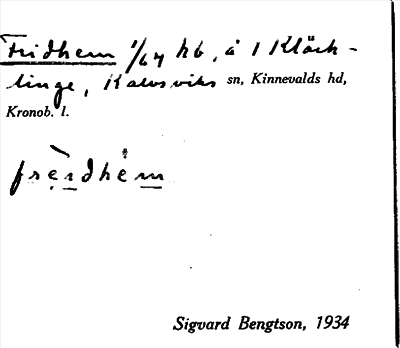 Fridhem 1/64 hb, å 1 Kläck-
linge, Kalvsviks sn, Kinnevalds hd,
Kronob. l.
fre̱i̱dhèm̱
Sigvard Bengtson, 1934